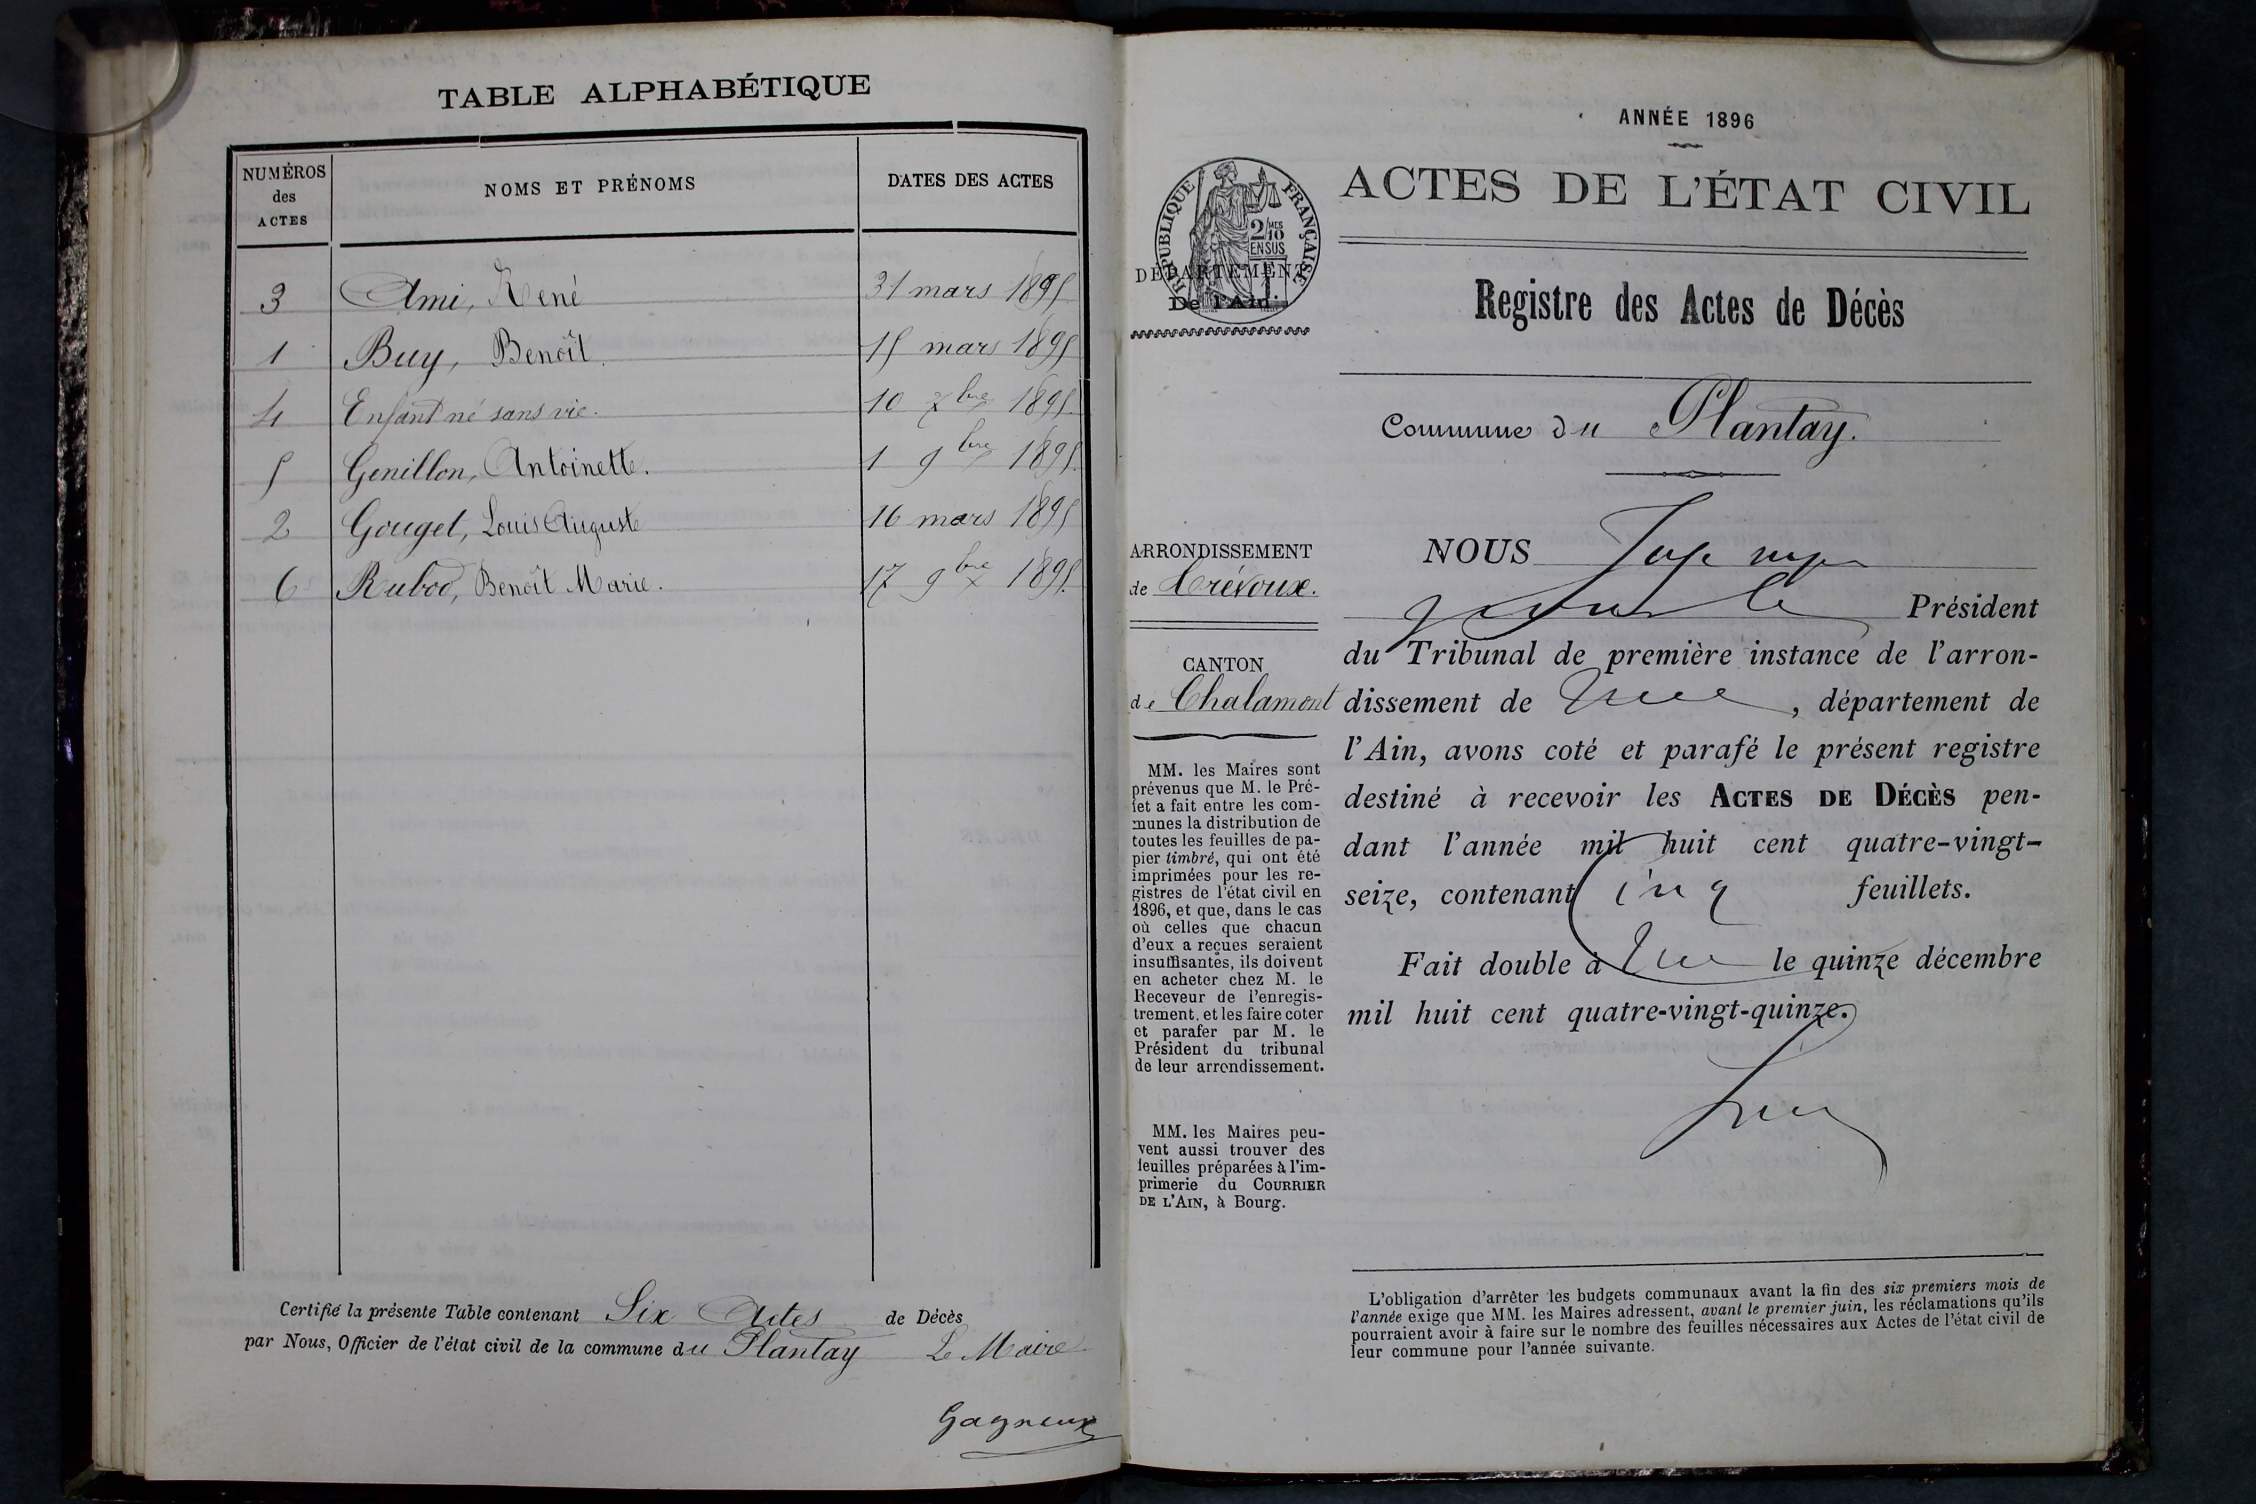 TABLE ALPHABÉTIQUE
NUMÉROS des ACTES
NOMS ET PRÉNOMS
DATES DES ACTES
3 Ami, René 31 mars 1895
1 Buy, Benoît. 15 mars 1895
4 Enfant né sans vie. 10 7bre 1895
5 Genillon, Antoinette. 1 9bre 1895
2 Gouget, Louis Auguste 16 mars 1895
6 Rubod, Benoît Marie. 17 9bre 1895
Certifié la présente Table contenant Six Actes de Décès
par Nous, Officier de l'état civil de la commune du Plantay Le Maire
Gagneux
ANNÉE 1896
RÉPUBLIQUE FRANÇAISE
2/10MES
EN SUS
DÉPARTEMENT
De l'Ain.
ACTES DE L'ÉTAT CIVIL
Registre des Actes de Décès
Commune du Plantay.
ARRONDISSEMENT
de Trévoux.
CANTON
de Chalamont
MM. les Maires sont
prévenus que M. le Pré-
fet a fait entre les com-
munes la distribution de
toutes les feuilles de pa-
pier timbré, qui ont été
imprimées pour les re-
gistres de l'état civil en
1896, et que, dans le cas
où celles que chacun
d'eux a reçues seraient
insuffisantes, ils doivent
en acheter chez M. le
Receveur de l'enregis-
trement, et les faire coter
et parafer par M. le
Président du tribunal
de leur arrondissement.
MM. les Maires peu-
vent aussi trouver des
feuilles préparées à l'im-
primerie du COURRIER
DE L'AIN, à Bourg.
NOUS Juge
Président
du Tribunal de première instance de l'arron-
dissement de , département de
l'Ain, avons coté et parafé le présent registre
destiné à recevoir les ACTES DE DÉCÈS pen-
dant l'année mil huit cent quatre-vingt-
seize, contenant Cinq feuillets.
Fait double à le quinze décembre
mil huit cent quatre-vingt-quinze.
L'obligation d'arrêter les budgets communaux avant la fin des six premiers mois de
l'année exige que MM. les Maires adressent, avant le premier juin, les réclamations qu'ils
pourraient avoir à faire sur le nombre des feuilles nécessaires aux Actes de l'état civil de
leur commune pour l'année suivante.